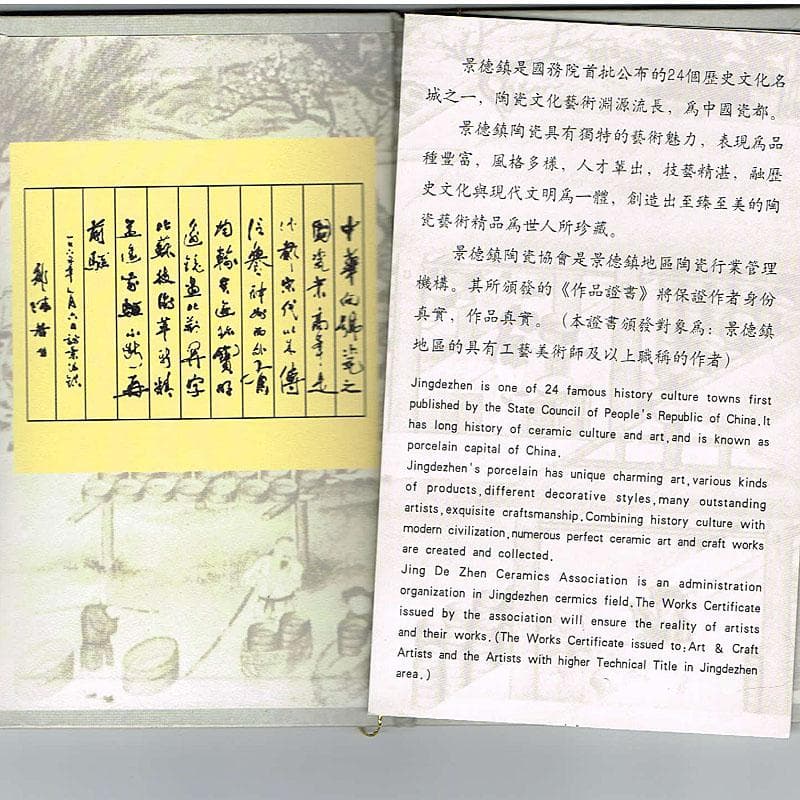 中華向號瓷之
國瓷業高峰是
此都宋代以來傳
信譽神州而外有
均輸貴逾珍寶明
逾鏡畫比荊關字
比蘇技術革新精
益進前驅不斷再
前驅
一九六五年七月六日
郭沫若
景德鎮是國務院首批公布的24個歷史文化名
城之一，陶瓷文化藝術淵源流長，爲中國瓷都。
景德鎮陶瓷具有獨特的藝術魅力，表現爲品
種豐富，風格多樣，人才輩出，技藝精湛，融歷
史文化與現代文明爲一體，創造出至臻至美的陶
瓷藝術精品爲世人所珍藏。
景德鎮陶瓷協會是景德鎮地區陶瓷行業管理
機構。其所頒發的《作品證書》將保證作者身份
真實，作品真實。（本證書頒發對象爲：景德鎮
地區的具有工藝美術師及以上職稱的作者）
Jingdezhen is one of 24 famous history culture towns first
published by the State Council of People's Republic of China.It
has long history of ceramic culture and art,and is known as
porcelain capital of China.
Jingdezhen's porcelain has unique charming art,various kinds
of products,different decorative styles,many outstanding
artists,exquisite craftsmanship.Combining history culture with
modern civilization,numerous perfect ceramic art and craft works
are created and collected.
Jing De Zhen Ceramics Association is an administration
organization in Jingdezhen cermics field.The Works Certificate
issued by the association will ensure the reality of artists
and their works.(The Works Certificate issued to:Art & Craft
Artists and the Artists with higher Technical Title in Jingdezhen
area.)